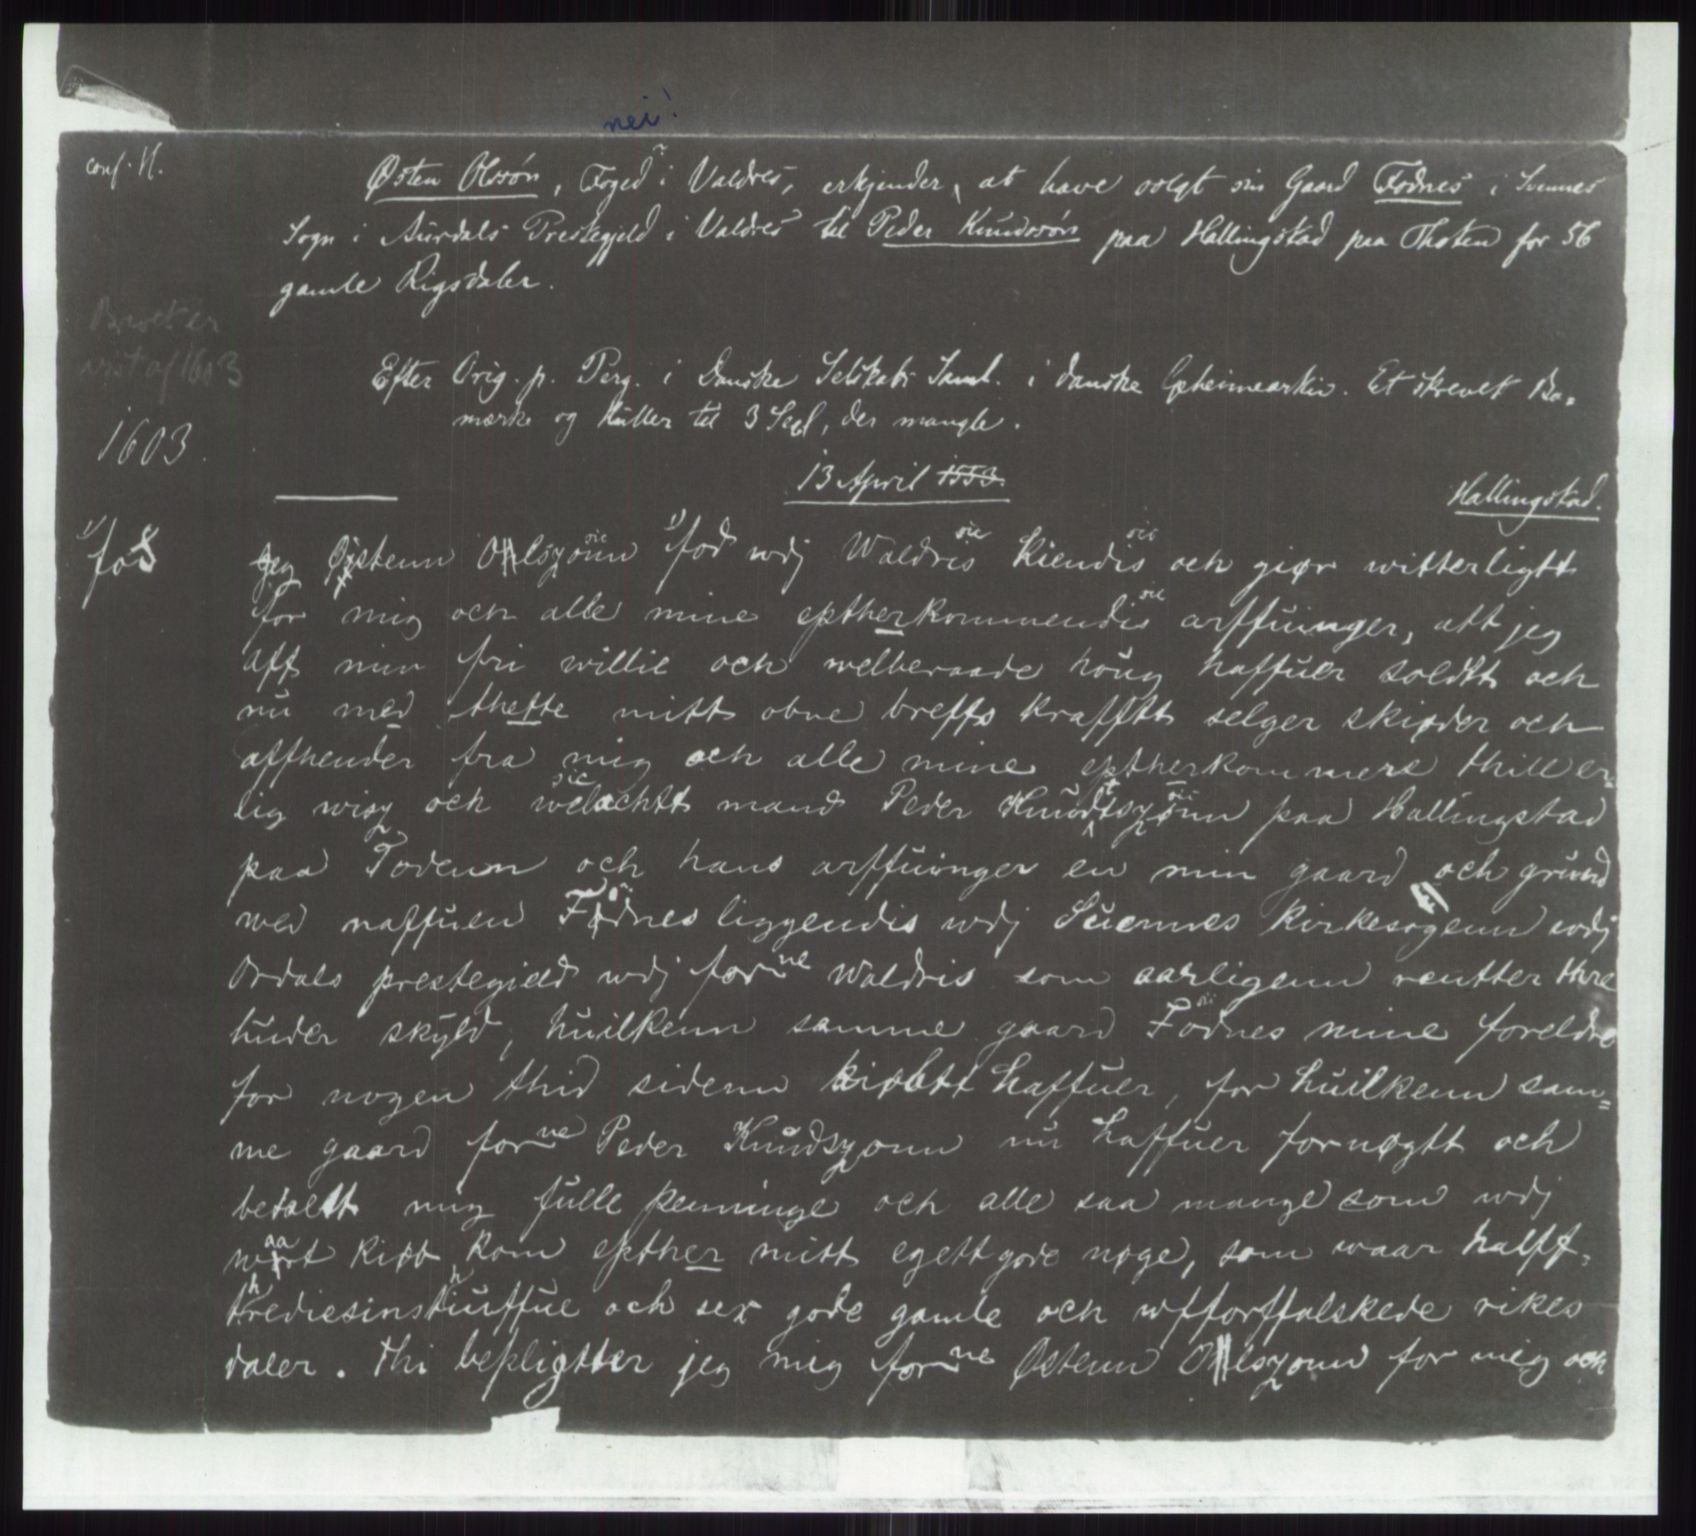 nei!
conf. H.
Østen Olssøn, Foged i Valdres, erkjender, at have solgt sin Gaard Fødnes i Svennes
Sogn i Aurdals Prestegjeld i Valdres til Peder Knudssøn paa Hallingstad paa Thoten for 56
gamle Rigsdaler.
Brevet er
vist af 1603
Efter Orig. p. Perg. i Danske Selskabs Saml. i danske Geheimearkiv. Et skrevet Bo-
mærke og Huller til 3 Segl, der mangle.
1603.
13 April 1553.
Hallingstad.
1) fos
Jeg Østenn Ollszonn sic 1) fod wdj Waldris sic kiendis sic och giør witterligtt
for mig och alle mine eptherkommendis sic arffuinger, att jeg
aff min fri willie och welberaade houg haffuer soldtt och
nu med thette mitt obne breffs krafftt selger skiøder och
affhender fra mig och alle mine eptherkommere thill er-
lig wisz och welachtt sic mand Peder Knudtszønn sic paa Hallingstad
paa Todenn och hans arffuinger en min gaard och grund
wed naffuen Fødnes sic liggendis wdj Suennes kirkesogenn wdj
Ordals prestegield wdj forne Waldris som aarligenn rentter thre
huder skyld, huilkenn samme gaard Fodnes sic mine foreldre
for nogen thid sidenn kiøbtt haffuer, for huilkenn sam-
me gaard forne Peder Knudszonn nu haffuer fornøgtt och
betaltt mig fulle penninge och alle saa mange som wdj
waart kiøb kom epther mitt egett gode nøge, som waar halff-
thrediesinsthiuffue och sex gode gamle och wfforffalskede rikes
daler. Thi bepligtter jeg mig forne Østenn Ollszonn for mig och